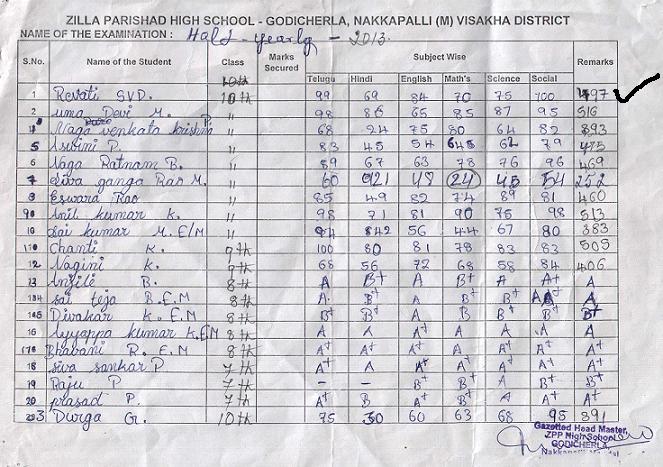 ZILLA PARISHAD HIGH SCHOOL - GODICHERLA, NAKKAPALLI (M) VISAKHA DISTRICT
NAME OF THE EXAMINATION : Half-yearly - 2013.
S.No. Name of the Student Class Marks Secured Subject Wise Remarks
Telugu Hindi English Math's Science Social
10th
1 Revati SVD. 10th 99 69 84 70 75 100 497
2 uma Devi M. " 98 86 65 85 87 95 516
Naga venkata krishna P. " 68 24 75 80 64 82 393
5 Asvini P. " 83 45 54 62 79
6 Naga Ratnam B. " 89 67 63 78 76 96 469
7 Siva ganga Rao M. " 60 21 48 24 45 54 252
Eswara Rao " 85 49 82 74 89 81 460
Anil kumar K. " 98 71 81 90 75 98 513
10 Sai kumar M. E/M " 94 42 56 44 67 80 383
Chanti K. 9th 100 80 81 78 83 83 505
12 Nagini K. 9th 68 56 72 68 58 84 406
13 Anjili B. 8th A B+ A B+ A A+ A
sai teja B.E.M 8th A. B+ A B+ B+ A A
Divakar K. E.M 8th B+ B+ A B+ B+ B+ B+
Ayyappa kumar K.E.M 8th A A A+ A A A A
Bhavani R. E.M 8th A+ A+ A+ A A+ A+ A+
18 Siva sankar P 7th A+ A+ A+ A+ A+ A+ A+
19 Raju P 7th - - B+ B+ A B+ B+
20 prasad P. 7th A+ B A A+ A A+ A+
Durga G. 10th 75 30 60 63 68 95 391
Gazetted Head Master,
ZPP High School
GODICHERLA,
Nakkapalli Mandal